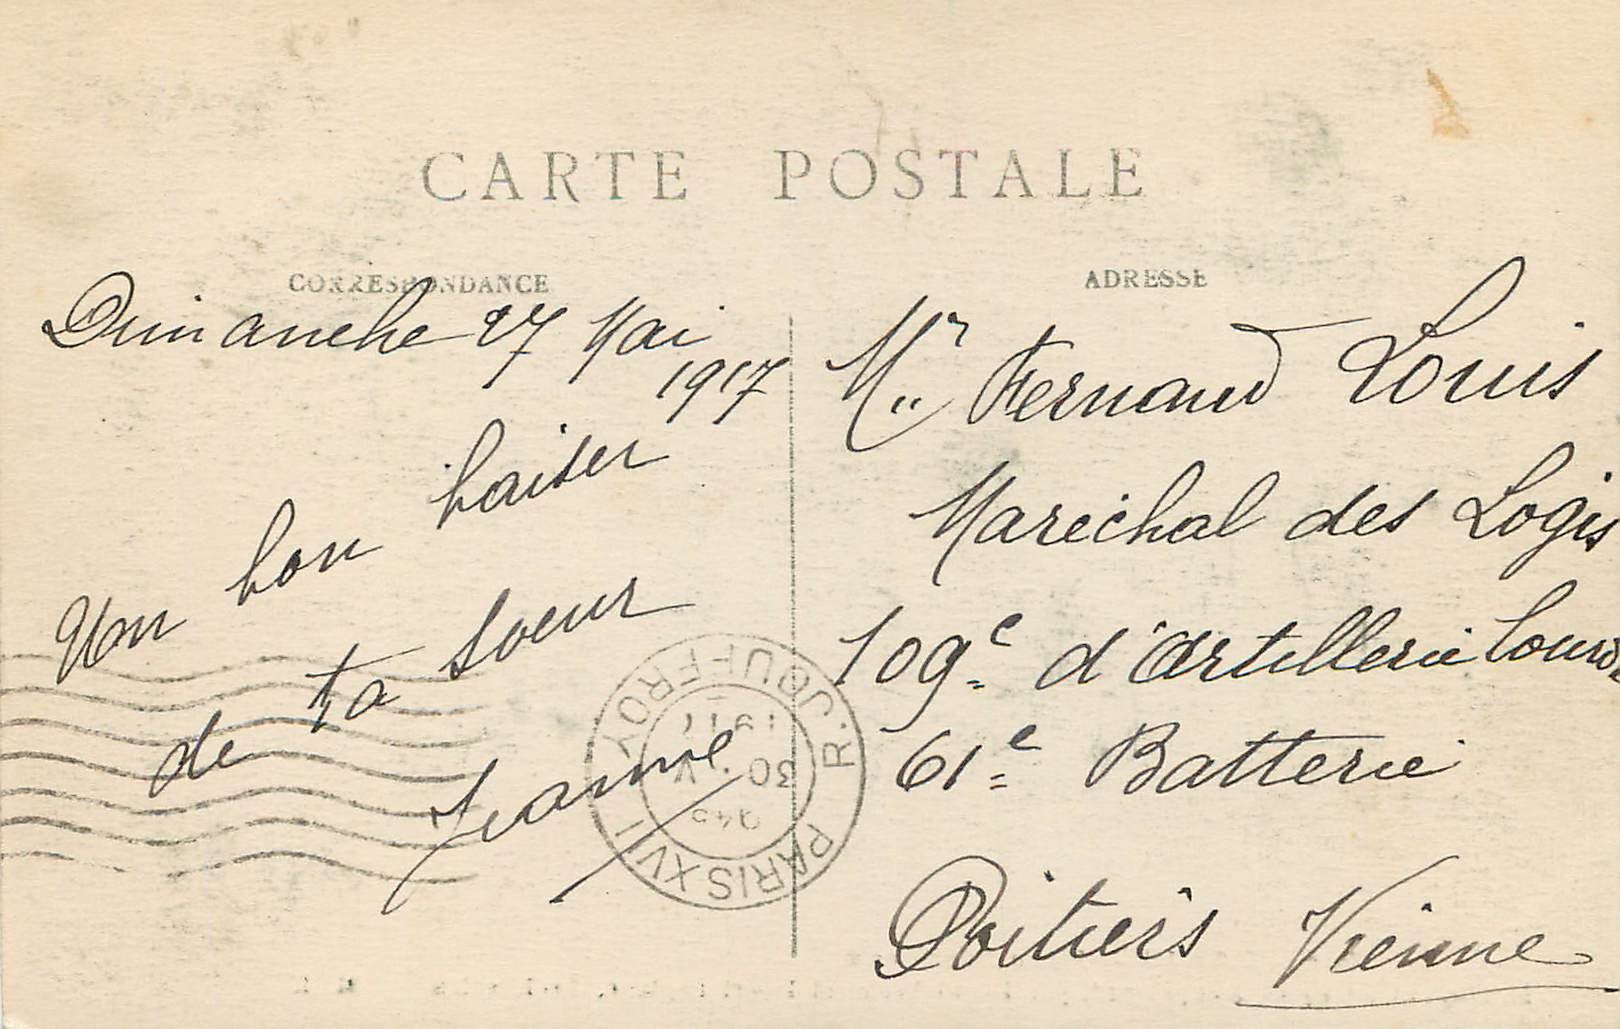 CARTE POSTALE
CORRESPONDANCE
Dimanche 27 Mai
1917
Un bon baiser
de ta soeur
Jeanne
ADRESSE
Mr Fernand Louis
Maréchal des Logis
109e d'Artillerie lourde
61e Batterie
Poitiers Vienne
PARIS XVII
R. JOUFFROY
30 V
1917